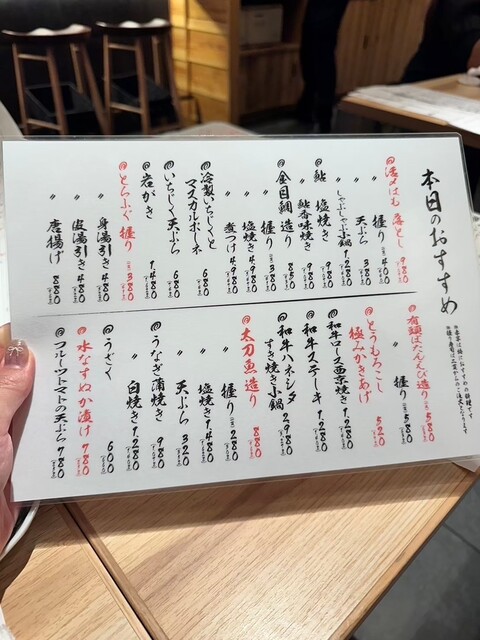 本日のおすすめ
◎活〆はも 落とし 980
〃 握り 480
〃 天ぷら 380
〃 しゃぶしゃぶ小鍋 1,280
◎鮎 塩焼き 980
〃 鮎香味焼き 980
◎金目鯛 造り 850
〃 握り 380
〃 塩焼き 4,980
〃 煮つけ 4,980
◎冷製いちじくと
マスカルポーネ 680
◎いちじく天ぷら 680
◎岩がき 1,480
◎とらふぐ 握り 380
〃 身湯引き 480
〃 皮湯引き 380
〃 唐揚げ 880
◎有頭ぼたんえび造り 580
〃 握り 580
◎とうもろこし
極みかきあげ 520
◎和牛ロース西京焼き 1,280
◎和牛ステーキ 1,280
◎和牛ハネシタ
すき焼き小鍋 2,980
◎太刀魚造り 880
〃 握り 280
〃 塩焼き 1,480
〃 天ぷら 320
◎うなぎ蒲焼き 980
〃 白焼き 980
◎うざく 600
◎水なすぬか漬け 780
◎フルーツトマトの天ぷら 780